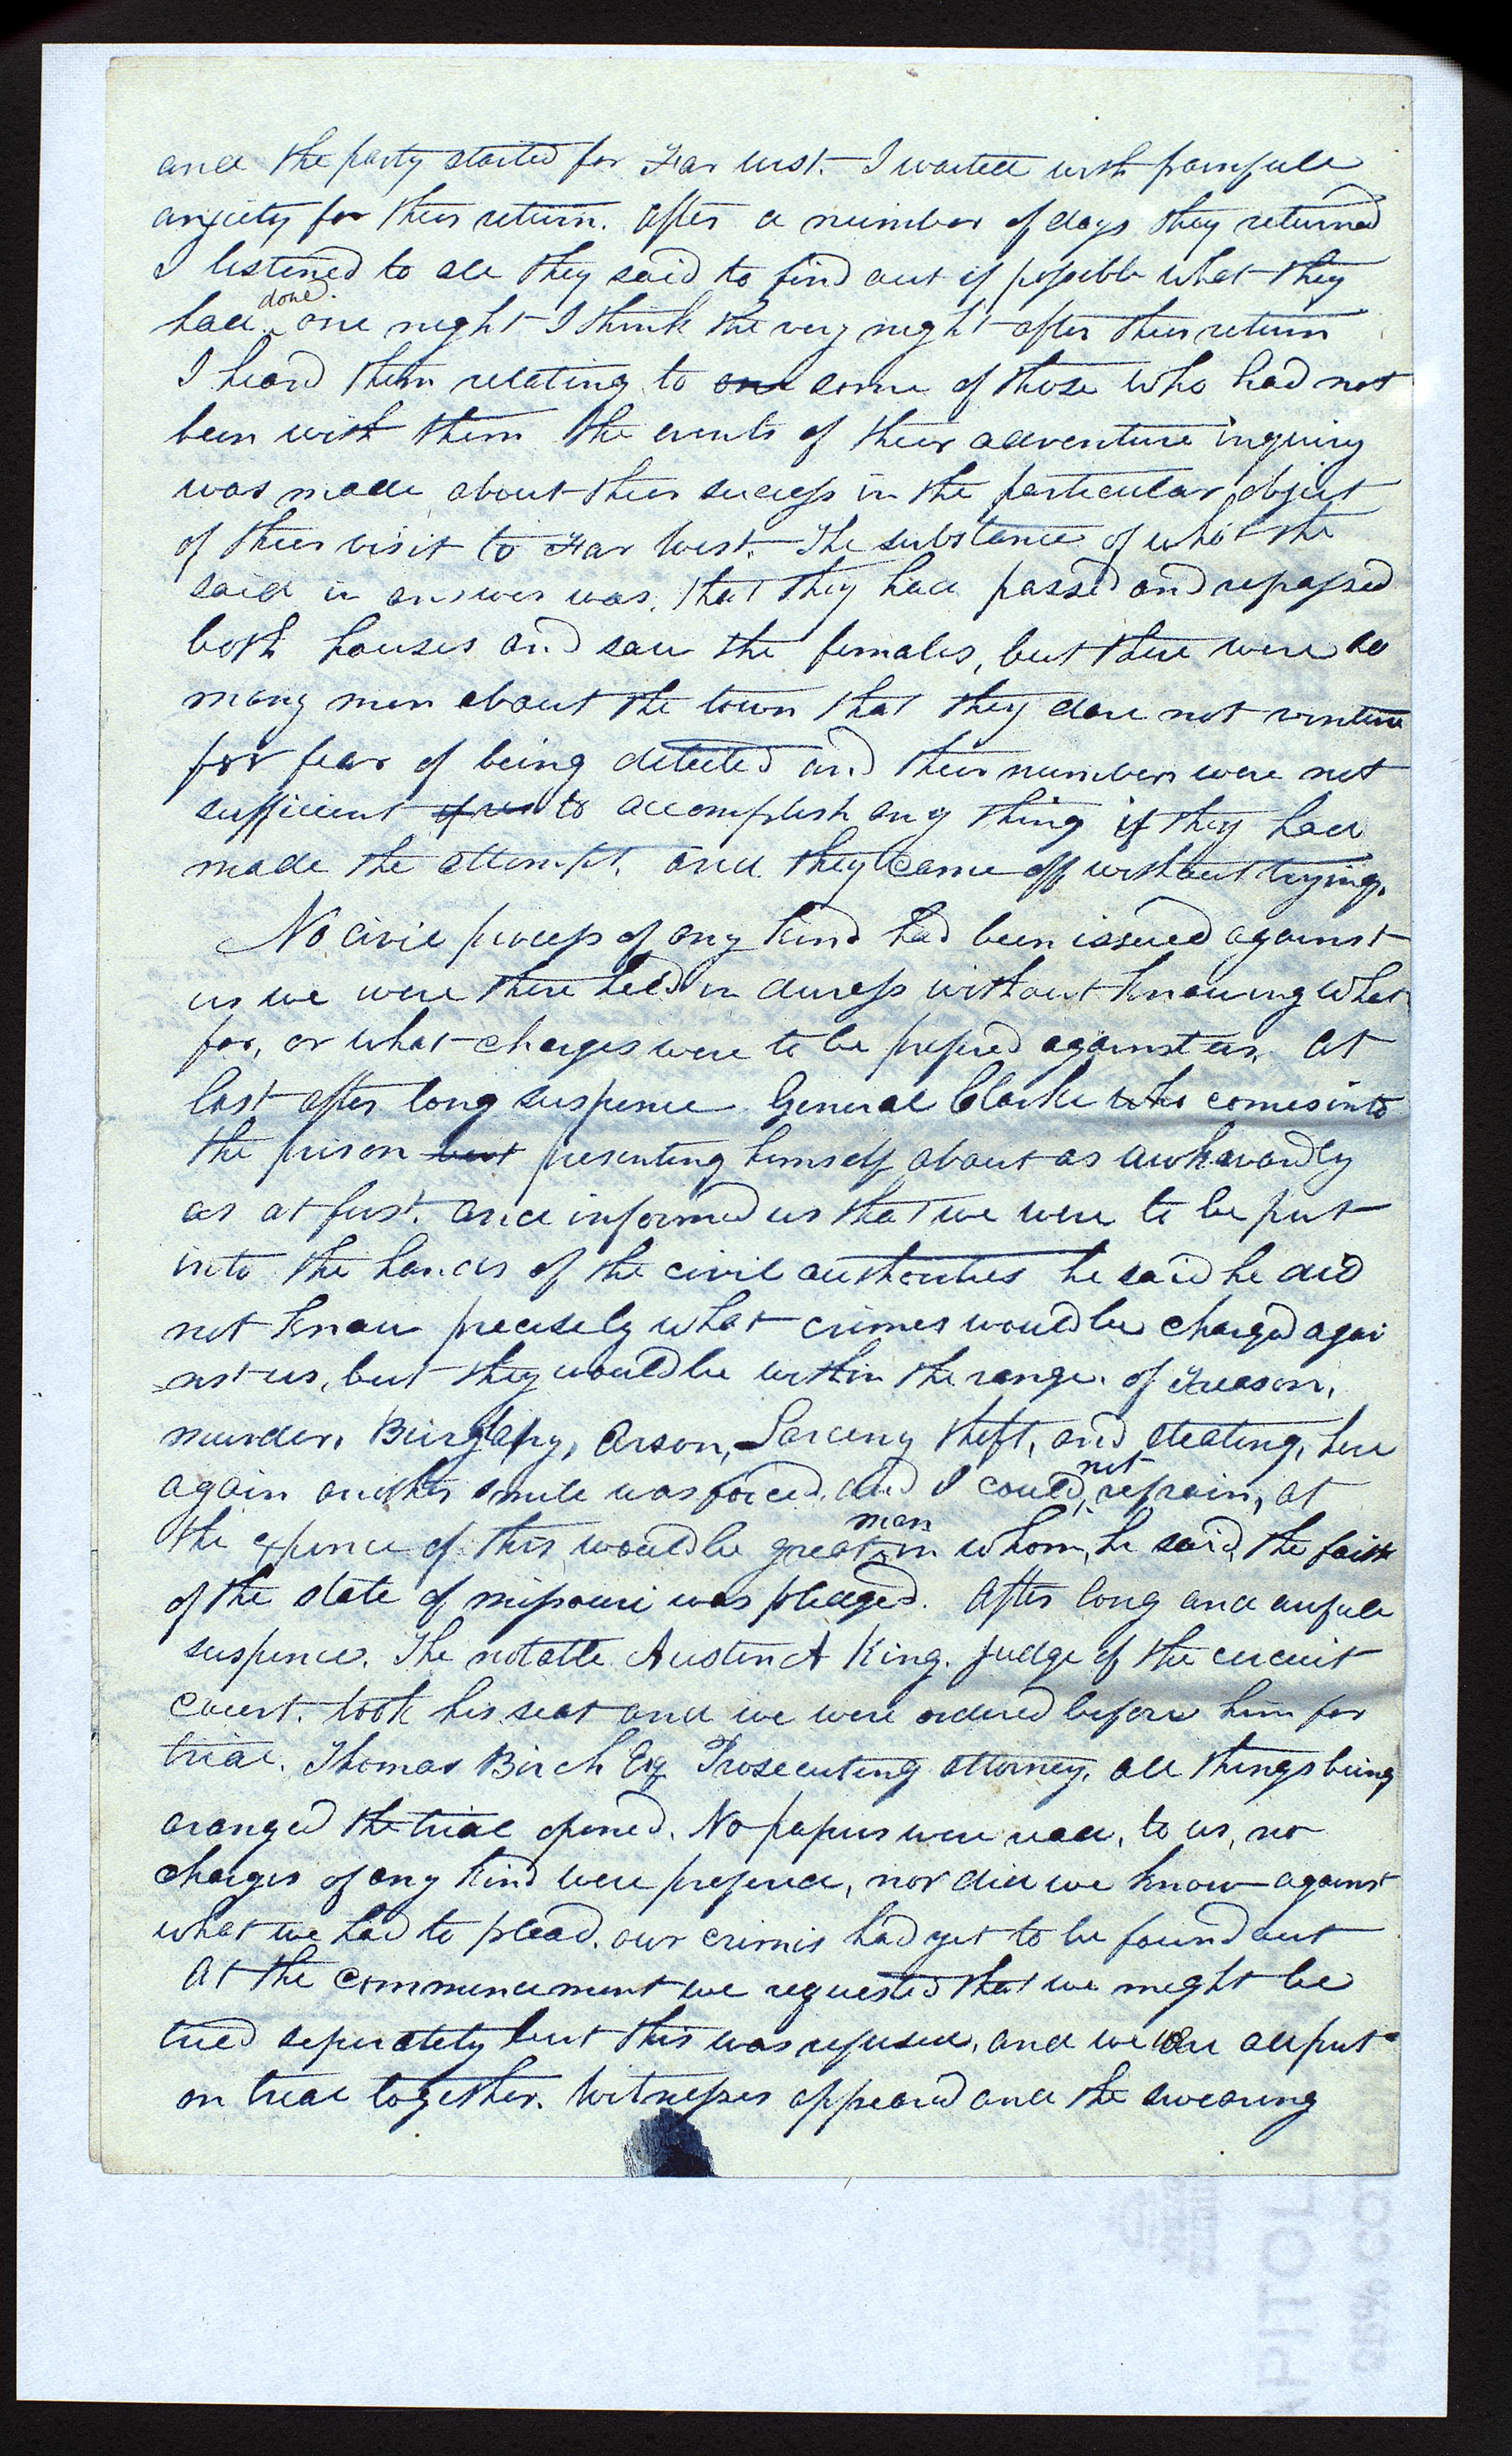 and the party started for Far West. I waited with painfull
anxiety for their return. After a number of days they returned
I listened to all they said to find out if possible what they
had done. one night I think the very night after their return
I heard them relating to one some of those who had not
been with them the events of their adventure inquiry
was made about their success in the particular object
of their visit to Far West. The substance of what the
said in answer was, that they had passed and repassed
both houses and saw the females, but there were so
many men about the town that they dare not venture
for fear of being detected and their numbers were not
sufficient to accomplish any thing if they had
made the attempt, and they came off without trying.
No civil process of any kind had been issued against
us we were there held in duress without knowing what
for, or what charges were to be prefered against us. At
last after long suspence General Clarke who comes into
the prison but presenting himself about as awkwardly
as at first. and informed us that we were to be put
into the hands of the civil authorities he said he did
not know precisely what crimes would be charged agai
nst us, but they would be within the range of Treason,
murder, Burglary, Arson, Larceny theft, and stealing, here
again another smile was forced, and I could not refrain, at
the expence of this would be great man in whom, he said, the faith
of the state of missouri was pledged. After long and awfull
suspence. The notable Austin A King. judge of the circuit
court. took his seat and we were ordered before him for
trial. Thomas Birch Esq Prosecuting attorney, all things being
aranged the trial opened. No papers were read, to us, no
charges of any kind were prefered, nor did we know against
what we had to plead. our crimes had yet to be found out
At the commencement we requested that we might be
tried seperately but this was refused, and we were all put
on trial together. Witnesses appeared and the swearing